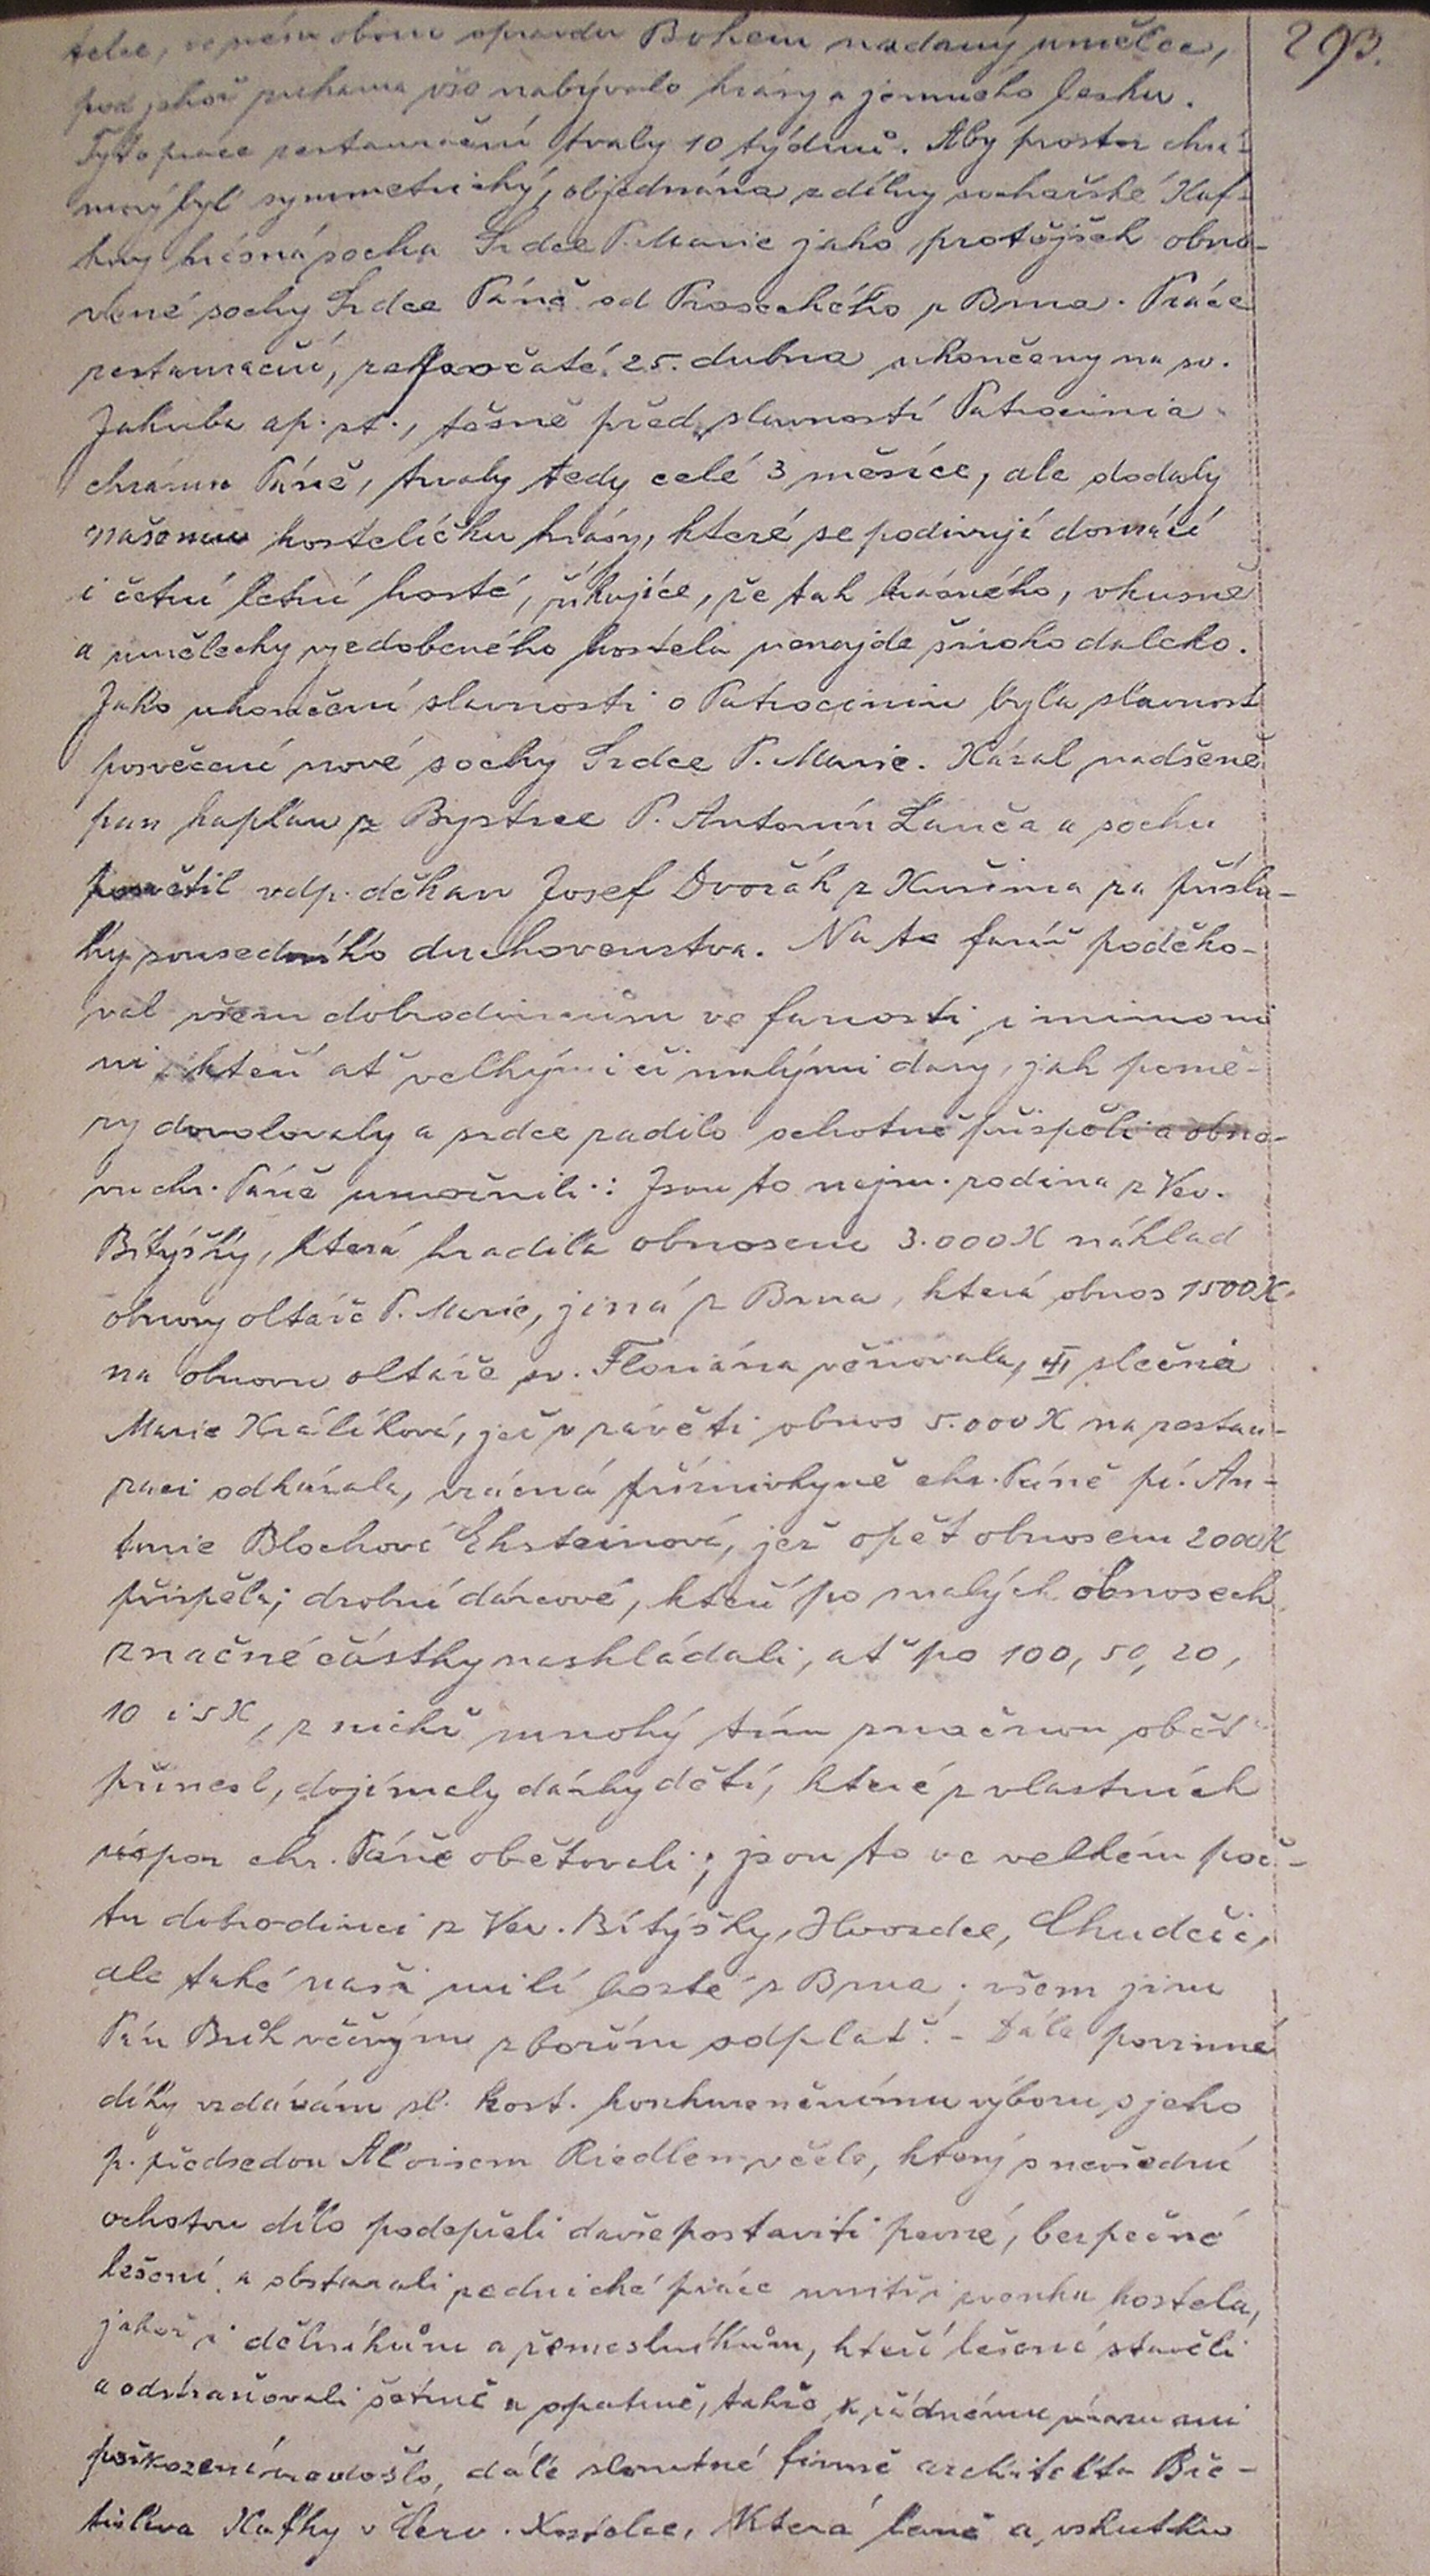 293.
telce, v oboru opravdu Bohem nadaný umělce,
pod jehož rukama vše nabývalo krásy a jemného lesku.
Tyto práce restaurační trvaly 10 týdnů. Aby prostor chrá-
mový byl symmetrický, objednána z dílny sochařské Kaf-
kovy krásná socha Srdce P. Marie jako protějšek obno-
vené sochy Srdce Páně od Proseckého z Brna. Práce
restaurační, započaté 25. dubna ukončeny na sv.
Jakuba ap. st., těsně před slavností Patrocinia
chrámu Páně, trvaly tedy celé 3 měsíce, ale dodaly
našemu kostelíčku krásy, které se podivují domácí
i četní letní hosté, říkajíce, že tak krásného, vkusně
a umělecky vyzdobeného kostela nenajde široko daleko.
Jako ukončení slavnosti o Patrociniu byla slavnost
posvěcení nové sochy Srdce P. Marie. Kázal nadšeně
pan kaplan z Bystrce P. Antonín Lanča a sochu
posvětil vdp. děkan Josef Dvořák z Kuřima za přislu-
hy sousedního duchovenstva. Na to farář poděko-
val všem dobrodincům ve farnosti i mimo ni
ni, kteří ať velkými či malými dary, jak pomě-
ry dovolovaly a srdce radilo ochotně přispěli a obno-
vu chr. Páně umožnili: Jsou to nejm. rodina z Vev.
Bítýšky, která hradila obnosem 3.000 K náklad
obnovy oltáře P. Marie, jiná z Brna, která obnos 1500 K
na obnovu oltáře sv. Floriána věnovala, III slečna
Marie Králíková, jež v závěti obnos 5.000 K na restau-
raci odkázala, vzácná příznivkyně chr. Páně pí. An-
tonie Blochová Eksteinová, jež opět obnosem 2000 K
přispěla; drobní dárcové, kteří po malých obnosech
značné částky naskládali, ať po 100, 50, 20,
10 i 5 K, z nichž mnohý tím značnou oběť
přinesl, dojímaly dárky dětí, které z vlastních
úspor chr. Páně obětovali; jsou to ve velkém poč-
tu dobrodinci z Vev. Bítýšky, Hvozdce, Chudčic,
ale také naši milí hosté z Brna; všem jim
Pán Bůh věčným zbožím odplať. - Dále povinné
díky vzdávám sl. kost. konkurenčnímu výboru s jeho
p. předsedou Aloisem Riedlem v čele, který s nevšední
ochotou dílo podepřeli davše postaviti pevné, bezpečné
lešení a obstarali zednické práce uvnitř i zvenku kostela,
jakož i dělníkům a řemeslníkům, kteří lešení stavěli
a odstraňovali šetrně a opatrně, takže k žádnému úrazu ani
poškození nedošlo, dále slovutné firmě architekta Bře-
tislava Kafky v Červ. Kostelce, která levně a vskutku